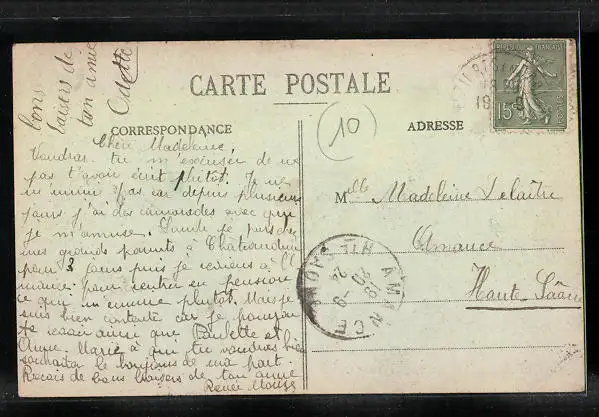 bons
baisers de
ton amie
CARTE POSTALE
CORRESPONDANCE
ADRESSE
10
REPUBLIQUE FRANÇAISE
15c
Chère Madeleine,
Voudras-tu m'excuser de ne
pas t'avoir écrit plutôt. Je ne
m'ennuie pas car depuis plusieurs
jours j'ai des camarades avec qui
je m'amuse. je pars chez
mes grands parents à Châteaudun
pour 3 jours puis je reviens à
pour rentrer en pension
ce qui m'ennuie plutôt. Mais je
suis bien contente car je pourrai
te revoir ainsi que Paulette et
Anne-Marie à qui tu voudras bien
souhaiter le bonjour de ma part.
Reçois de bons baisers de ton amie
Renée
Mlle Madeleine Delaître
Amance
Haute-Saône
AMANCE